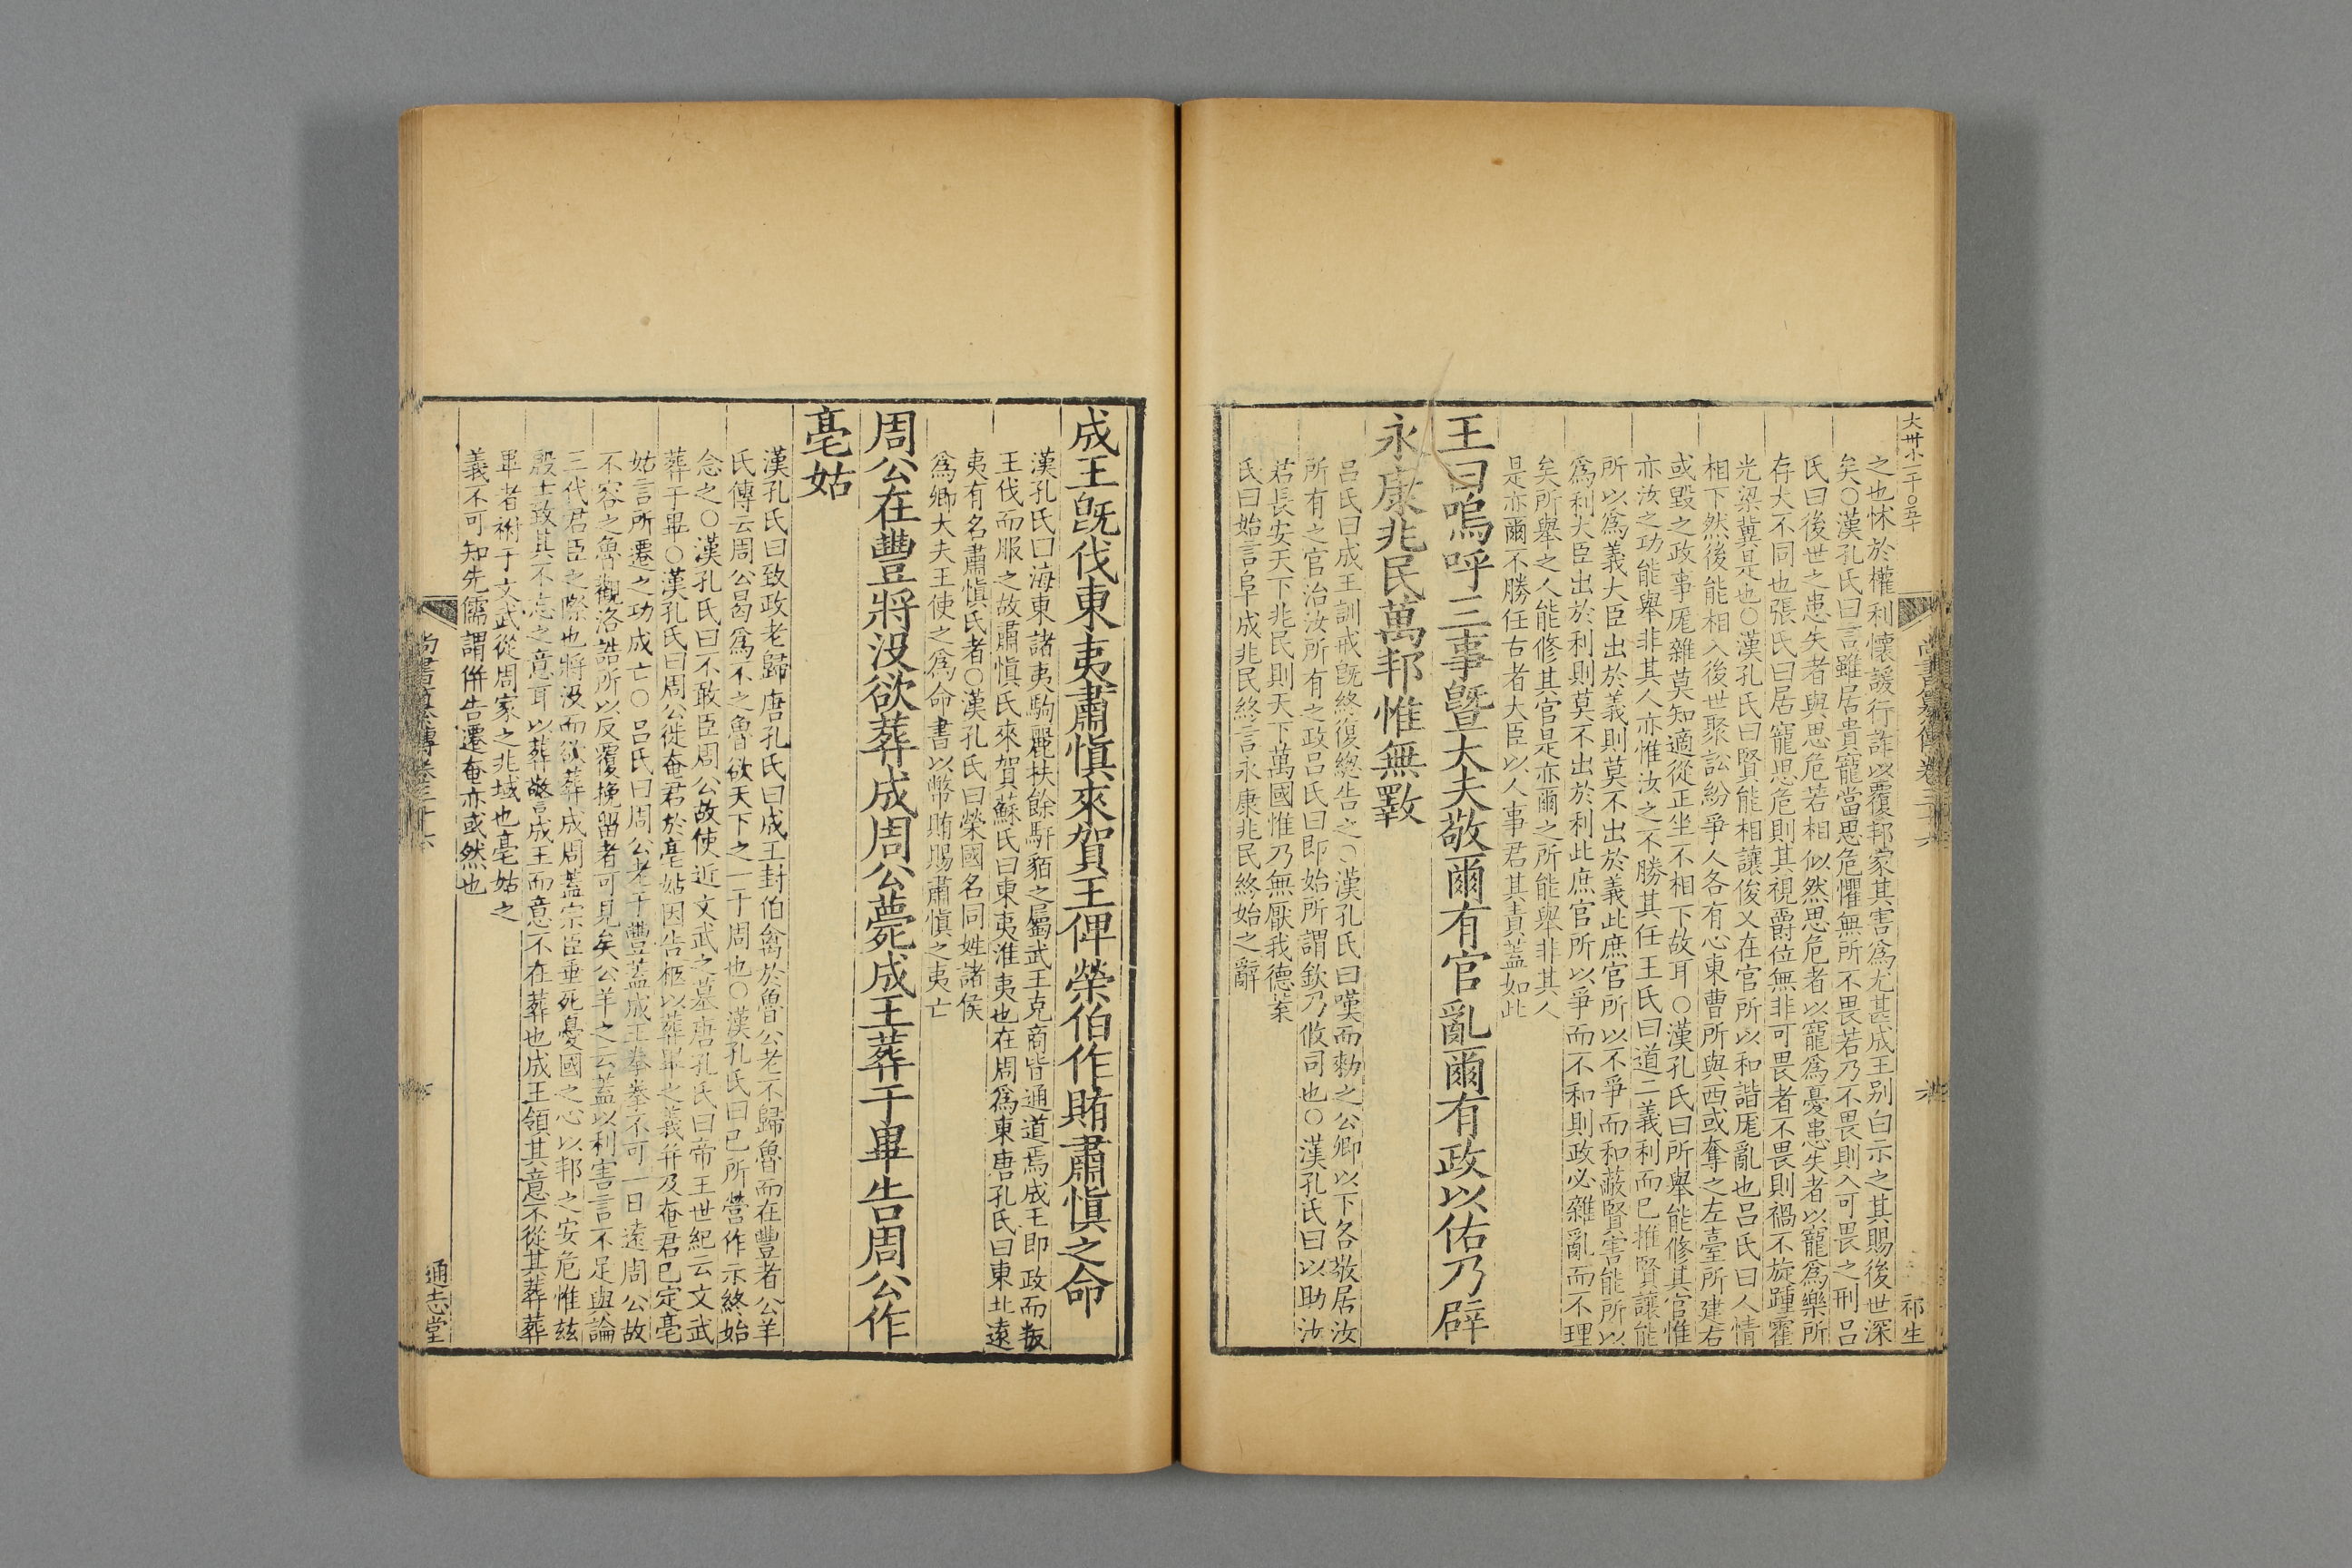 大卅小一千〇五十
之也怵於權利懷諼行詐以覆邦家其害爲尤甚成王別白示之其賜後世深
矣○漢孔氏曰言雖居貴寵當思危懼無所不畏若乃不畏則入可畏之刑呂
氏曰後世之患失者與思危若相似然思危者以寵爲憂患失者以寵爲樂所
存大不同也張氏曰居寵思危則其視爵位無非可畏者不畏則禍不旋踵霍
光梁冀是也○漢孔氏曰賢能相讓俊乂在官所以和諧厖亂也呂氏曰人情
相下然後能相入後世聚訟紛爭人各有心東曹所與西或奪之左臺所建右
或毀之政事厖雜莫知適從正坐不相下故耳○漢孔氏曰所舉能修其官惟
亦汝之功能舉非其人亦惟汝之不勝其任王氏曰道二義利而已推賢讓能
所以爲義大臣出於義則莫不出於義此庶官所以不爭而和蔽賢害能所以
爲利大臣出於利則莫不出於利此庶官所以爭而不和則政必雜亂而不理
矣所舉之人能修其官是亦爾之所能舉非其人
是亦爾不勝任古者大臣以人事君其責蓋如此
王曰嗚呼三事曁大夫敬爾有官亂爾有政以佑乃辟
永康兆民萬邦惟無斁
呂氏曰成王訓戒旣終復總告之○漢孔氏曰嘆而勑之公卿以下各敬居汝
所有之官治汝所有之政呂氏曰卽始所謂欽乃攸司也○漢孔氏曰以助汝
君長安天下兆民則天下萬國惟乃無厭我德葉
氏曰始言阜成兆民終言永康兆民終始之辭
祁生
成王旣伐東夷肅愼來賀王俾榮伯作賄肅愼之命
漢孔氏曰海東諸夷駒麗扶餘馯貊之屬武王克商皆通道焉成王即政而叛
王伐而服之故肅愼氏來賀蘇氏曰東夷淮夷也在周爲東唐孔氏曰東北遠
夷有名肅愼氏者○漢孔氏曰榮國名同姓諸侯
爲卿大夫王使之爲命書以幣賄賜肅愼之夷亡
周公在豐將沒欲葬成周公薨成王葬于畢告周公作
亳姑
漢孔氏曰致政老歸唐孔氏曰成王封伯禽於魯公老不歸魯而在豐者公羊
氏傳云周公曷爲不之魯欲天下之一于周也○漢孔氏曰已所營作示終始
念之○漢孔氏曰不敢臣周公故使近文武之墓唐孔氏曰帝王世紀云文武
葬于畢○漢孔氏曰周公徙奄君於亳姑因告柩以葬畢之義幷及奄君已定亳
姑言所遷之功成亡○呂氏曰周公老于豐蓋成王拳拳不可一日遠周公故
不容之魯觀洛誥所以反覆挽留者可見矣公羊之云蓋以利害言不足與論
三代君臣之際也將沒而欲葬成周蓋宗臣垂死憂國之心以邦之安危惟茲
殷士致其不忘之意耳以葬警成王而意不在葬也成王領其意不從其葬葬
畢者祔于文武從周家之兆域也亳姑之
義不可知先儒謂倂告遷奄亦或然也
尚書纂傳卷三十六
通志堂